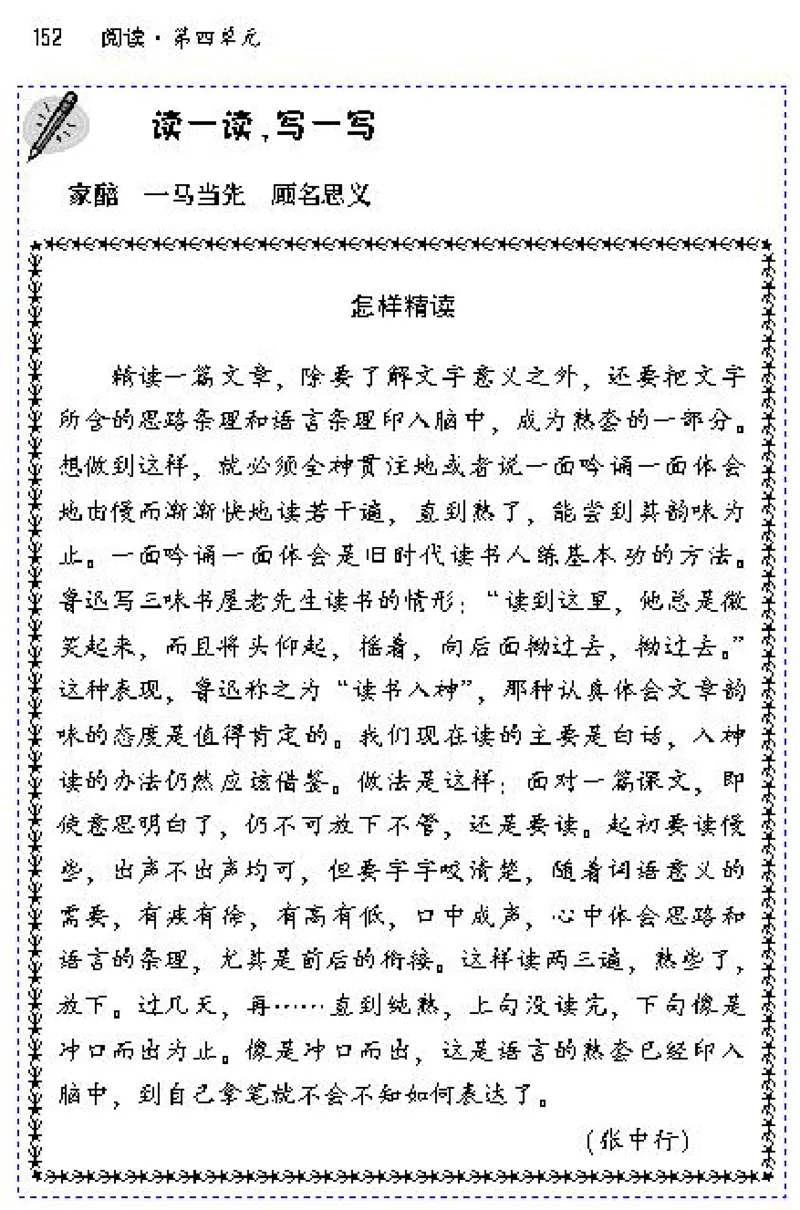 152 阅读·第四单元
读一读,写一写
家醅 一马当先 顾名思义
怎样精读
精读一篇文章，除要了解文字意义之外，还要把文字
所含的思路条理和语言条理印入脑中，成为熟套的一部分。
想做到这样，就必须全神贯注地或者说一面吟诵一面体会
地由慢而渐渐快地读若干遍，直到熟了，能尝到其韵味为
止。一面吟诵一面体会是旧时代读书人练基本功的方法。
鲁迅写三味书屋老先生读书的情形：“读到这里，他总是微
笑起来，而且将头仰起，摇着，向后面拗过去，拗过去。”
这种表现，鲁迅称之为“读书入神”，那种认真体会文章韵
味的态度是值得肯定的。我们现在读的主要是白话，入神
读的办法仍然应该借鉴。做法是这样：面对一篇课文，即
使意思明白了，仍不可放下不管，还是要读。起初要读慢
些，出声不出声均可，但要字字咬清楚，随着词语意义的
需要，有疾有徐，有高有低，口中成声，心中体会思路和
语言的条理，尤其是前后的衔接。这样读两三遍，熟些了，
放下。过几天，再……直到纯熟，上句没读完，下句像是
冲口而出为止。像是冲口而出，这是语言的熟套已经印入
脑中，到自己拿笔就不会不知如何表达了。
(张中行)